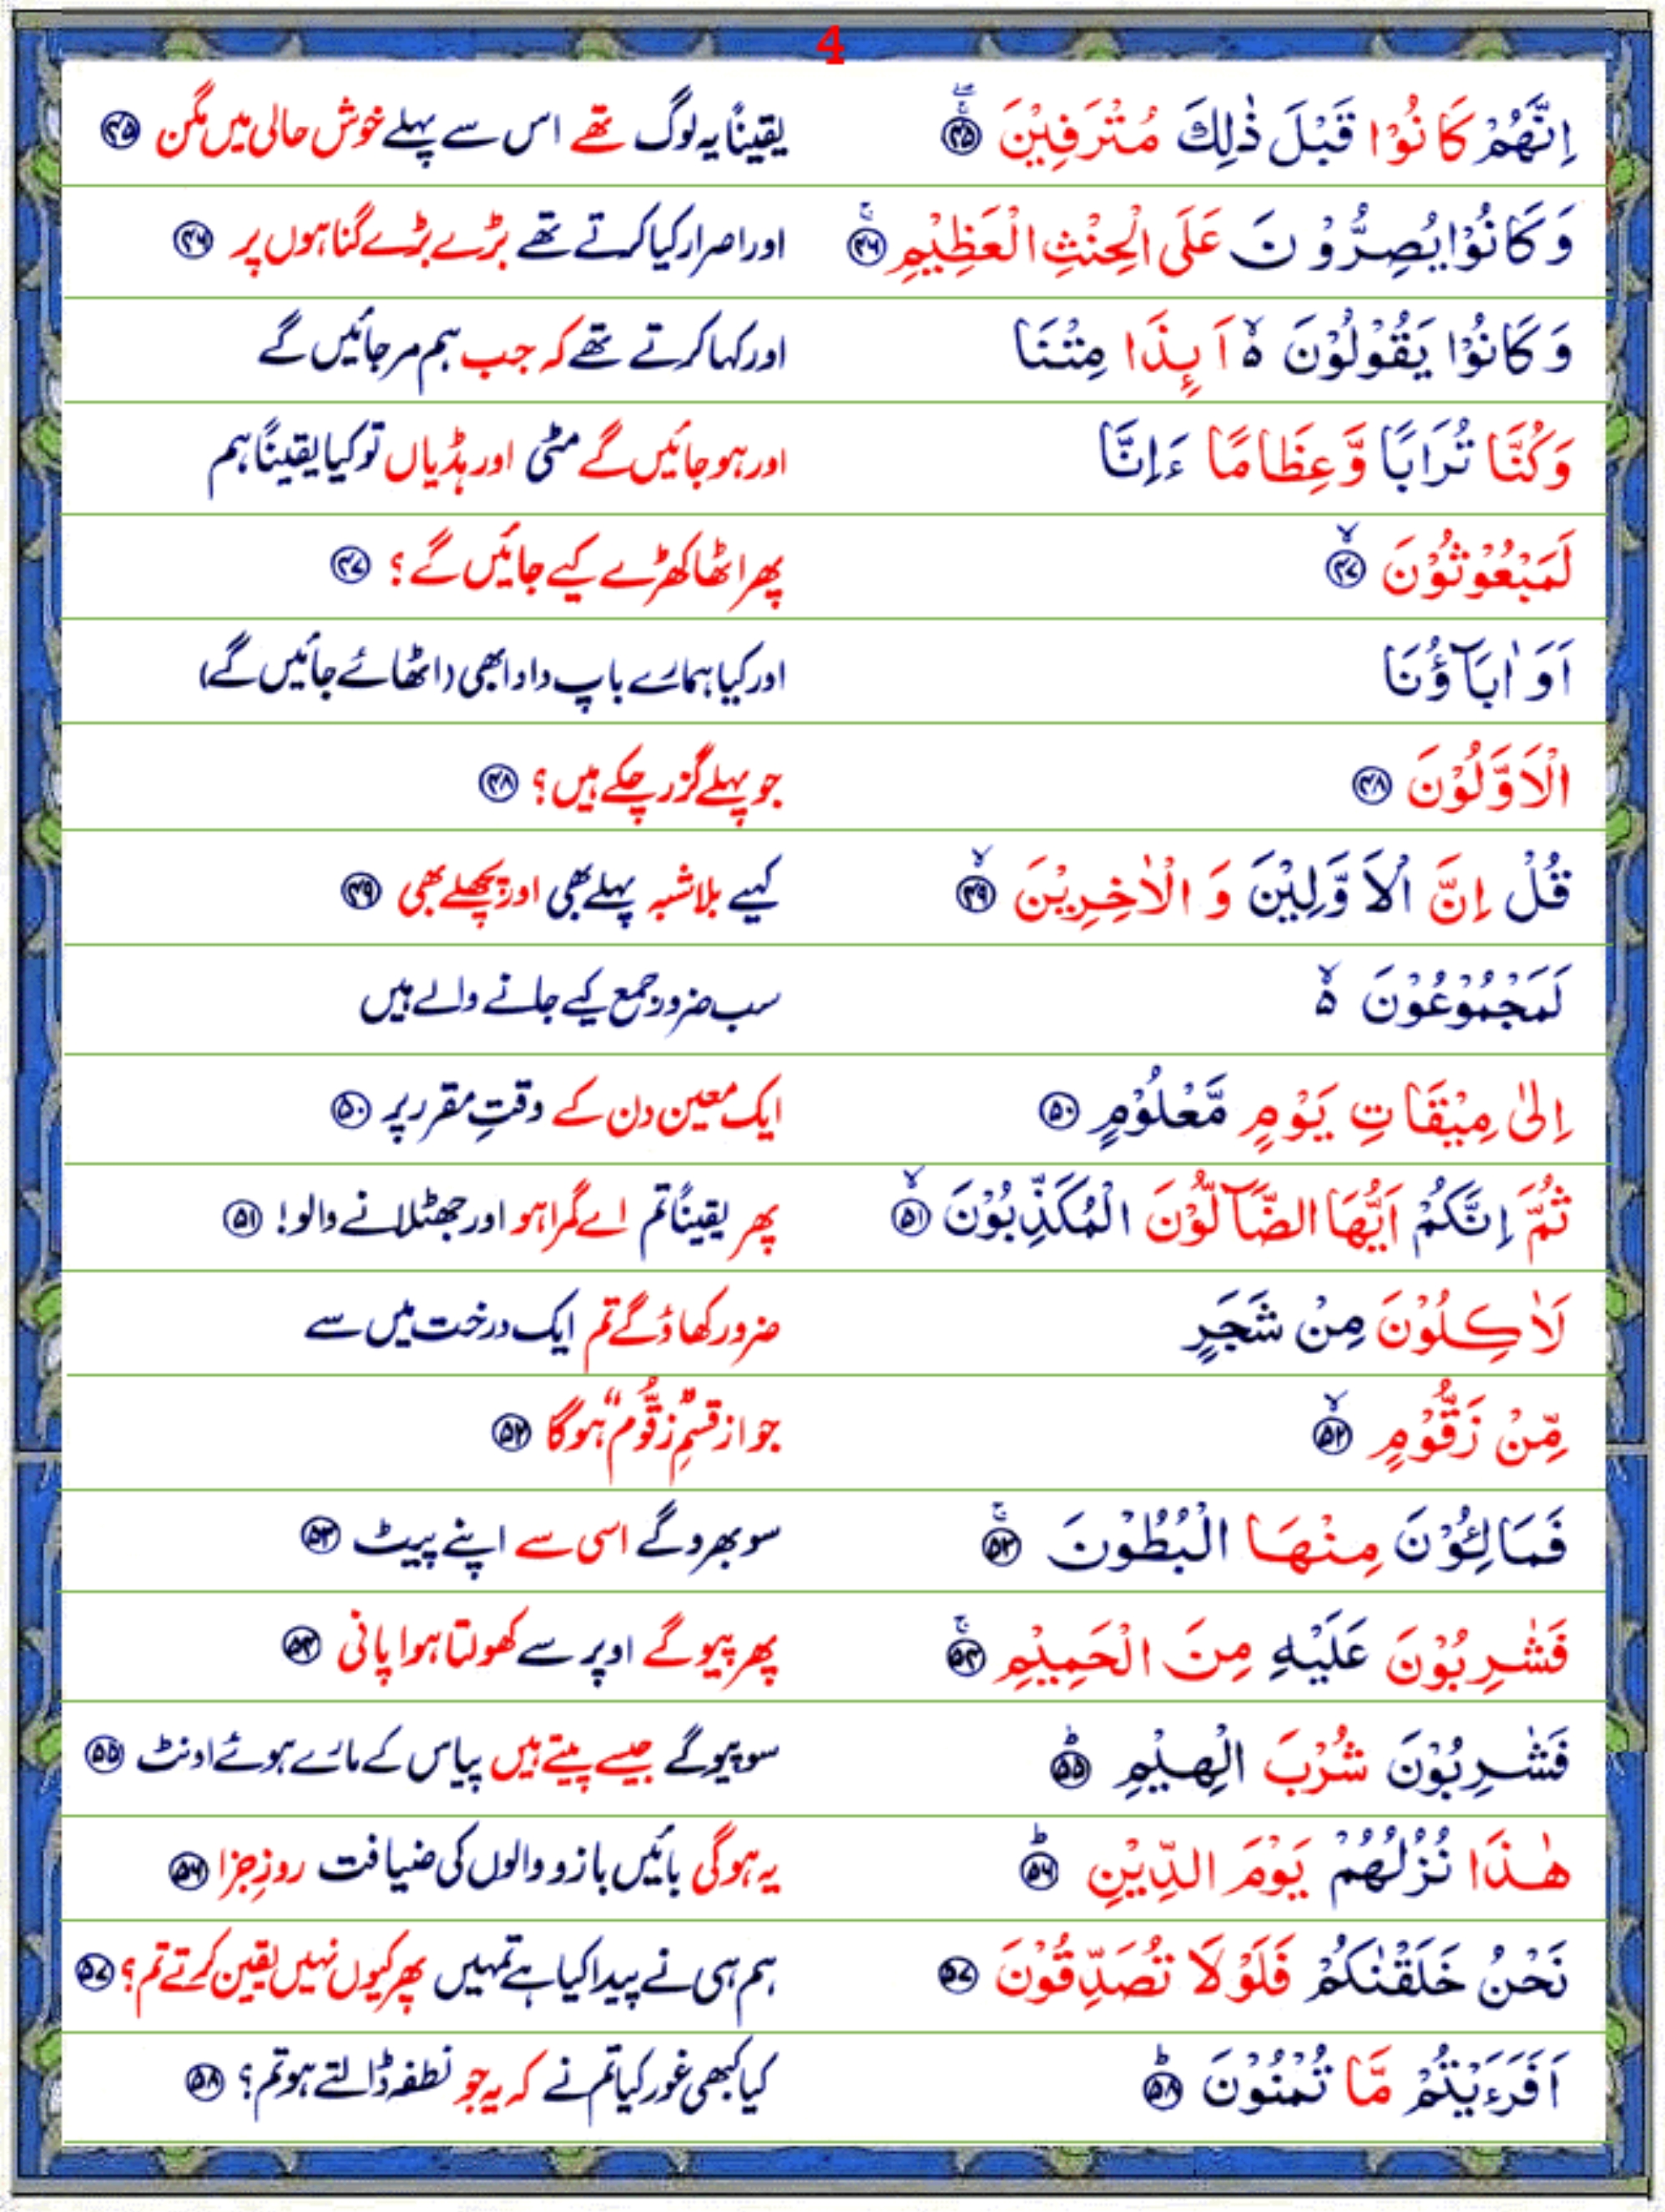 4
اِنَّهُمْ كَانُوْا قَبْلَ ذٰلِكَ مُتْرَفِيْنَ ۚۖ ﴿۴۵﴾ یقیناً یہ لوگ تھے اس سے پہلے خوش حالی میں مگن ﴿۴۵﴾
وَكَانُوْا يُصِرُّوْنَ عَلَى الْحِنْثِ الْعَظِيْمِ ۚ ﴿۴۶﴾ اور اصرار کیا کرتے تھے بڑے بڑے گناہوں پر ﴿۴۶﴾
وَكَانُوْا يَقُوْلُوْنَ ۙ۬ اَىِٕذَا مِتْنَا اور کہا کرتے تھے کہ جب ہم مر جائیں گے
وَكُنَّا تُرَابًا وَّعِظَامًا ءَاِنَّا اور ہو جائیں گے مٹی اور ہڈیاں تو کیا یقیناً ہم
لَمَبْعُوْثُوْنَ ۙ ﴿۴۷﴾ پھر اٹھا کھڑے کیے جائیں گے؟ ﴿۴۷﴾
اَوَاٰبَآؤُنَا اور کیا ہمارے باپ دادا بھی (اٹھائے جائیں گے)
الْاَوَّلُوْنَ ﴿۴۸﴾ جو پہلے گزر چکے ہیں؟ ﴿۴۸﴾
قُلْ اِنَّ الْاَوَّلِيْنَ وَالْاٰخِرِيْنَ ۙ ﴿۴۹﴾ کہیے بلاشبہ پہلے بھی اور پچھلے بھی ﴿۴۹﴾
لَمَجْمُوْعُوْنَ ۙ۬ سب ضرور جمع کیے جانے والے ہیں
اِلٰى مِيْقَاتِ يَوْمٍ مَّعْلُوْمٍ ﴿۵۰﴾ ایک معین دن کے وقتِ مقرر پر ﴿۵۰﴾
ثُمَّ اِنَّكُمْ اَيُّهَا الضَّآلُّوْنَ الْمُكَذِّبُوْنَ ۙ ﴿۵۱﴾ پھر یقیناً تم اے گمراہو اور جھٹلانے والو! ﴿۵۱﴾
لَاٰكِلُوْنَ مِنْ شَجَرٍ ضرور کھاؤ گے تم ایک درخت میں سے
مِّنْ زَقُّوْمٍ ۙ ﴿۵۲﴾ جو از قسمِ ”زقُّوم“ ہوگا ﴿۵۲﴾
فَمَالِـُٔوْنَ مِنْهَا الْبُطُوْنَ ۚ ﴿۵۳﴾ سو بھرو گے اسی سے اپنے پیٹ ﴿۵۳﴾
فَشٰرِبُوْنَ عَلَيْهِ مِنَ الْحَمِيْمِ ۚ ﴿۵۴﴾ پھر پیو گے اوپر سے کھولتا ہوا پانی ﴿۵۴﴾
فَشٰرِبُوْنَ شُرْبَ الْهِيْمِ ؕ ﴿۵۵﴾ سو پیو گے جیسے پیتے ہیں پیاس کے مارے ہوئے اونٹ ﴿۵۵﴾
هٰذَا نُزُلُهُمْ يَوْمَ الدِّيْنِ ؕ ﴿۵۶﴾ یہ ہوگی بائیں بازو والوں کی ضیافت روزِ جزا ﴿۵۶﴾
نَحْنُ خَلَقْنٰكُمْ فَلَوْلَا تُصَدِّقُوْنَ ﴿۵۷﴾ ہم ہی نے پیدا کیا ہے تمہیں پھر کیوں نہیں یقین کرتے تم؟ ﴿۵۷﴾
اَفَرَءَيْتُمْ مَّا تُمْنُوْنَ ؕ ﴿۵۸﴾ کیا کبھی غور کیا تم نے کہ یہ جو نطفہ ڈالتے ہو تم؟ ﴿۵۸﴾